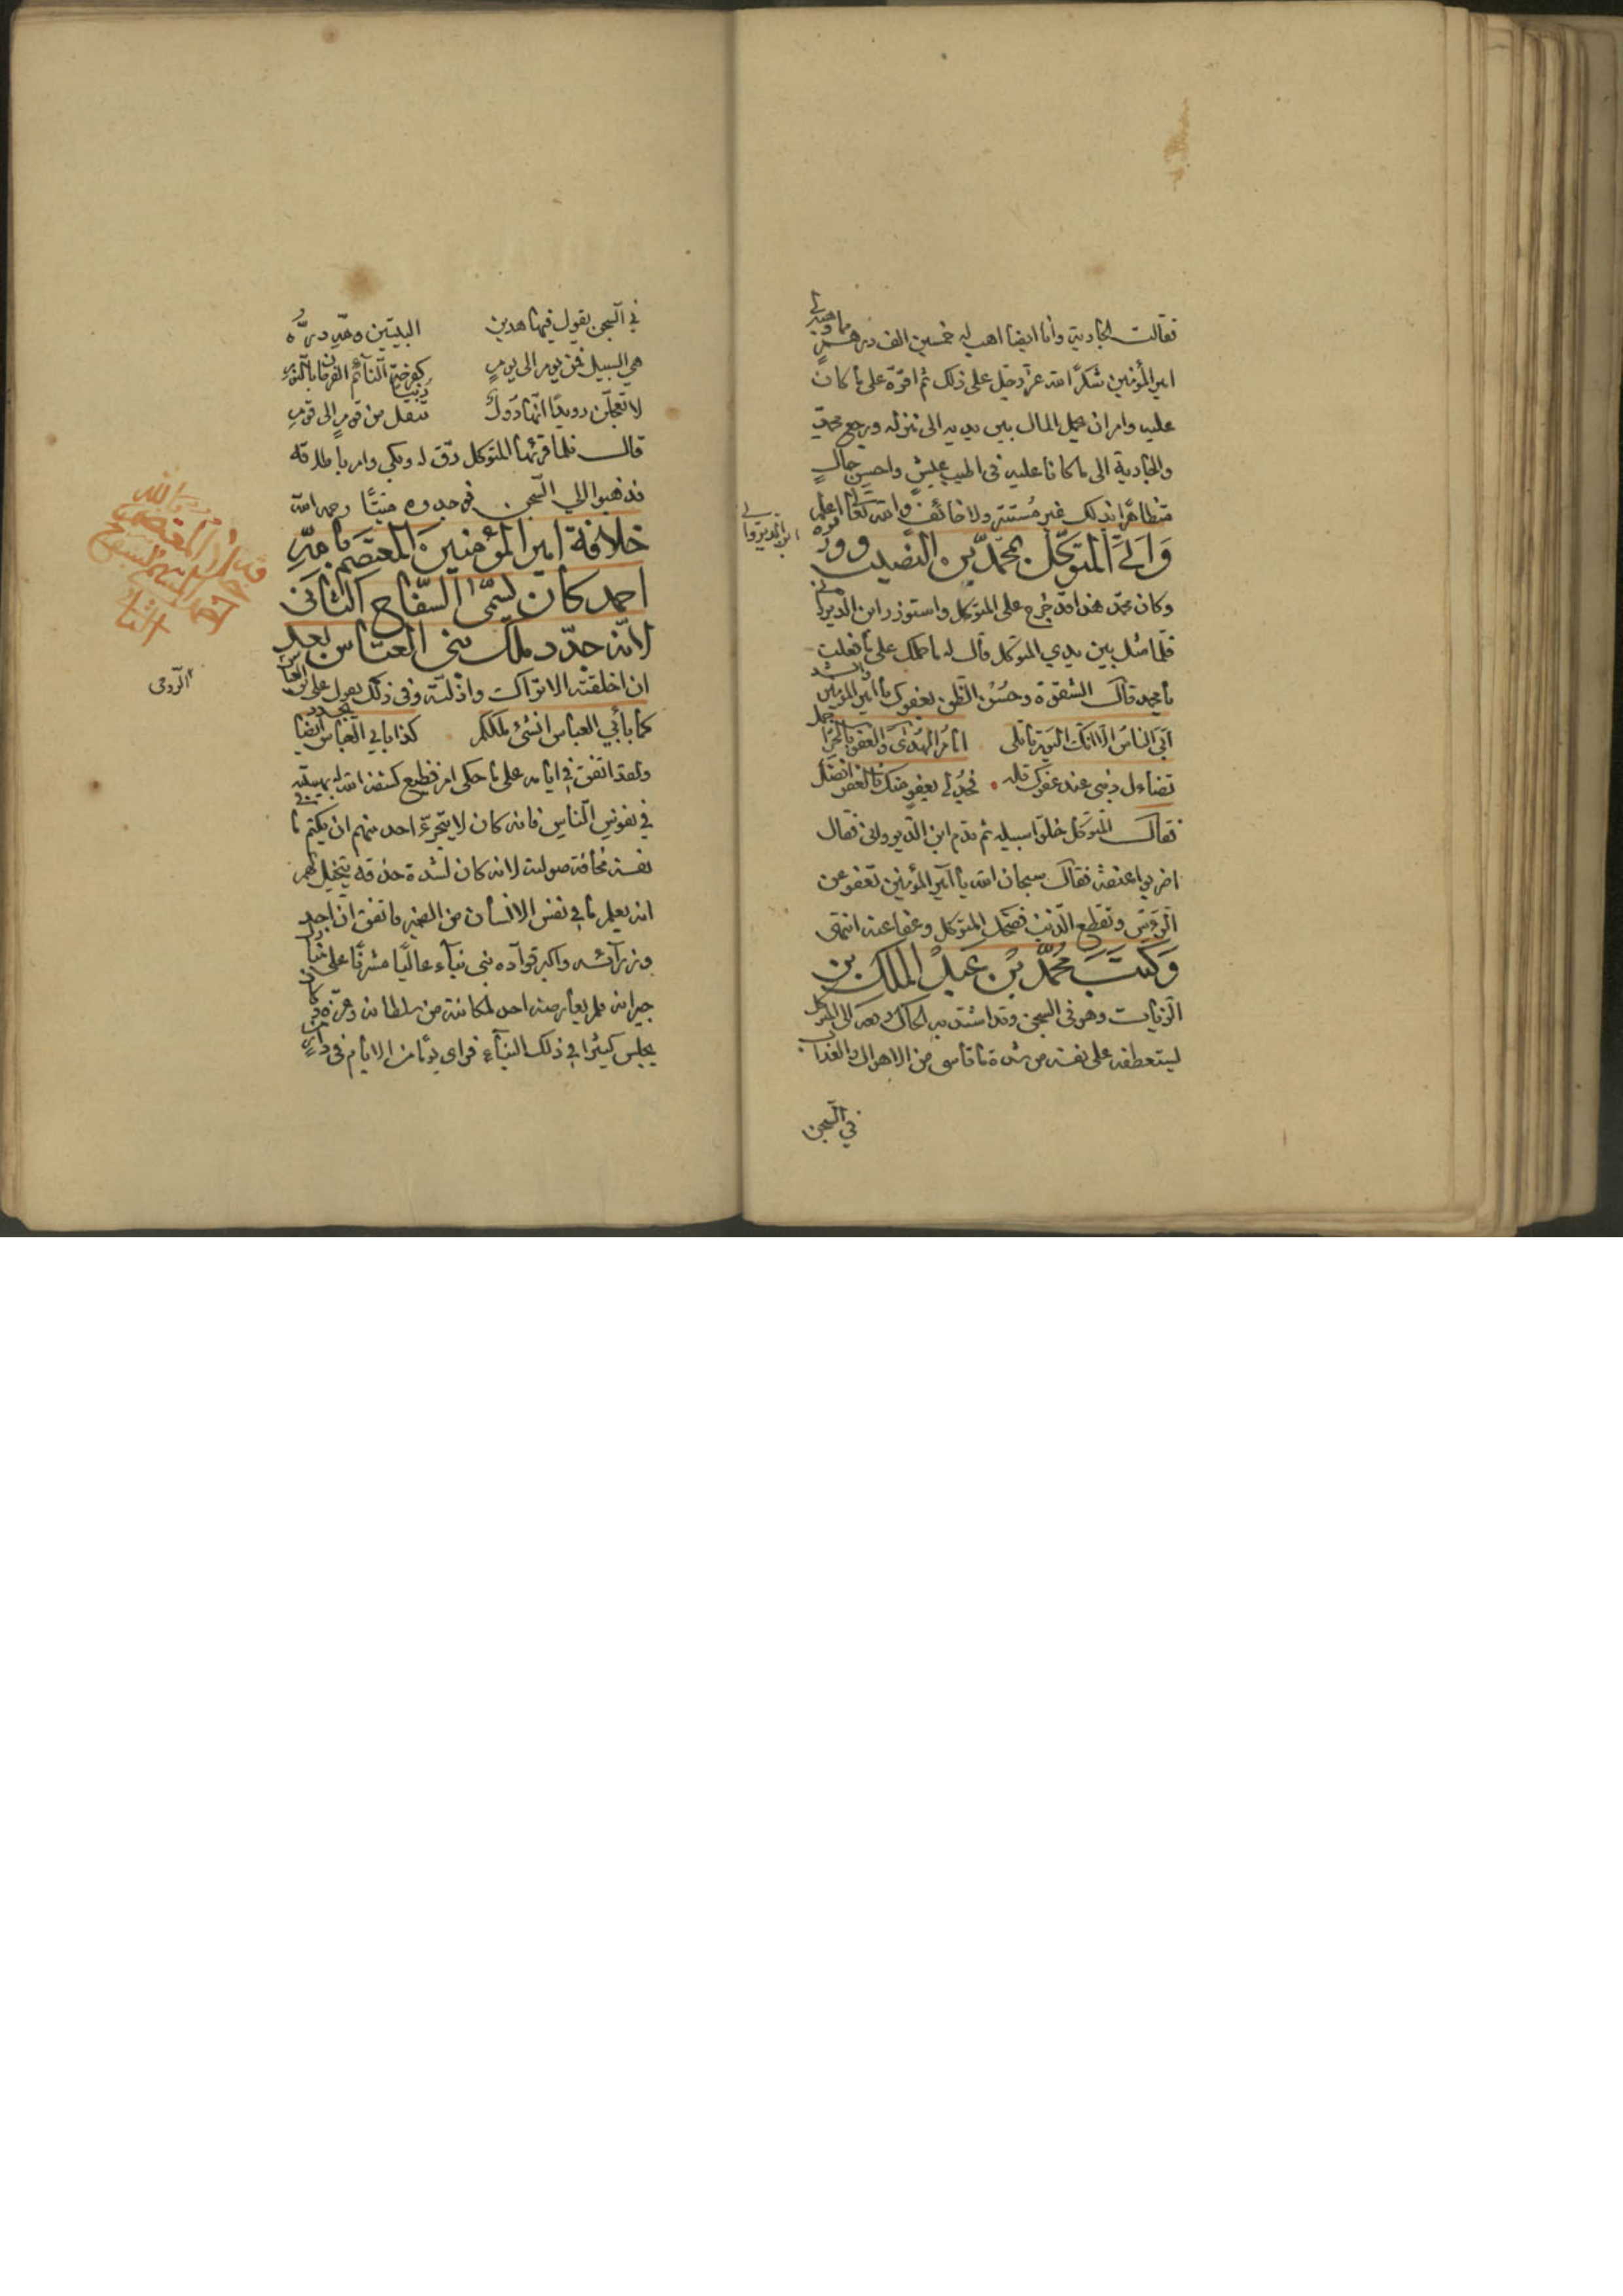 فقالت الجارية وانا ايضا اهب له خمسين الف درهم مما وهبه لي
امير المؤمنين شكرًا لله عز وجل على ذلك ثم اقرّه على ما كان
عليه وامر ان يحمل المال بين يديه الى منزله ورجع محمد
والجارية الى ما كانا عليه في اطيب عيش واحسن حالٍ
متظاهرًا بذلك غير مُستتر ولا خائف والله تعالى اعلم
وَاُتِيَ المتوكّل بمحمّد بن البعيث و
ابن الديرواني
وكان محمد هذا قد خرج على المتوكل واستوزر ابن الديرواني
فلمّا مثل بين يدي المتوكل قال له ما حملك على ما فعلت
يا محمد قال الشقوة وحُسن الظن بعفوك يا امير المؤمنين وانشد
ابى الناسُ الا انك اليوم قاتلي امام الهُدى والعفو بالحرّ اجمل
تضاءل ذنبي عند عفوك قلة فجُد لي بعفو منك فالعفو افضل
فقال المتوكل خلّوا سبيله ثم قدم ابن الديرواني فقال
اضربوا عنقه فقال سبحان الله يا امير المؤمنين تعفو عن
الرؤس وتقطع الذنب فضحك المتوكل وعفا عنه انتهى
وَكَتَبَ مُحمّد بْن عَبْد الملك بن
الزيات وهو في السجن وقد اشتد به الحال رقعة الى المتوكل
ليستعطفه على نفسه من شدة ما قاسى من الاهوال والعذاب
في السجن
في السجن يقول فيها هذين البيتين وهي درّه
هي السبيل فمن يوم الى يومٍ كفرحة النائم الفرحان بالنوم
لا تعجلن رويدًا انّها دولٌ دنيا تنقل من قومٍ الى قوم
قال فلما قرئها المتوكل رقّ له وبكى وامر باطلاقه
فذهبوا الي السجن فوجدوه ميتًا رحمه الله
خلافة امير المؤمنين المعتضد بالله
احمد كان يسمّى السفّاح الثاني
لانه جدّد ملك بني العباس بعد
ان اخلقته الاتراك واذلته وفي ذلك يقول على بن العباس
الرومى
كما بأبي العباس انشئ ملككم كذا بابي العباس ايضا يجدد
ولقد اتفق في ايامه على ما حكى امر فظيع كشفه الله له بهيبته
في نفوس الناس فانه كان لا يتجرئ احد منهم ان يكتم ما في
نفسه مخافة صولته لانه كان لشدة حذقه يتخيل لهم
انه يعلم ما في نفس الانسان من الضمير فاتفق ان احد
وزرآئه واكبر قوآده بنى بنآء عاليًا مشرفًا على منازل
جيرانه فلم يعارضه احد لمكانته من سلطانه وعزّه وكان
يجلس كثيرا في ذلك البنآء فراى يومًا من الايام في دار